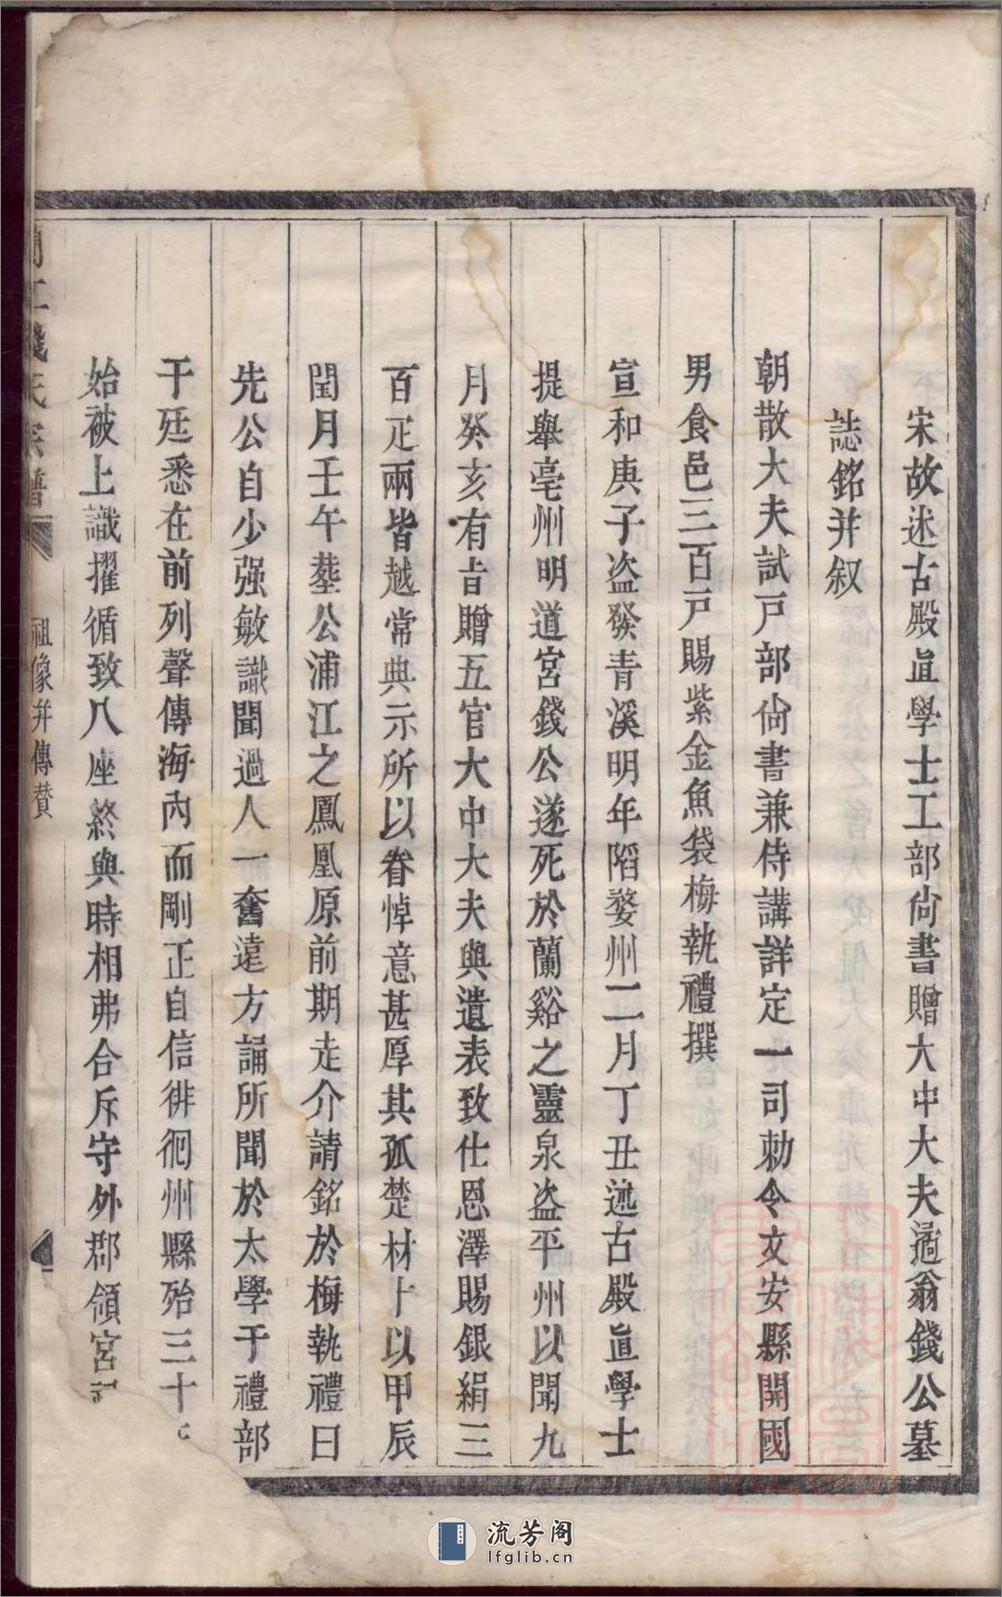 宋故述古殿直學士工部尙書贈大中大夫逷翁錢公墓
誌銘并叙
朝散大夫試戸部尙書兼侍講詳定一司勅令文安縣開國
男食邑三百戸賜紫金魚袋梅執禮撰
宣和庚子盗發青溪明年陷婺州二月丁丑述古殿直學士
提舉亳州明道宮錢公遂死於蘭谿之靈泉盗平州以聞九
月癸亥有㫖贈五官大中大夫與遺表致仕恩澤賜銀絹三
百疋兩皆越常典示所以眷悼意甚厚其孤楚材卜以甲辰
閏月壬午塟公浦江之鳳凰原前期走介請銘於梅執禮曰
先公自少强敏識聞過人一奮遠方誦所聞於太學于禮部
于廷悉在前列聲傳海內而剛正自信徘徊州縣殆三十
始被上識擢循致八座終與時相弗合斥守外郡領宮
錢氏宗譜 祖像并傳贊
流芳阁
lfglib.cn